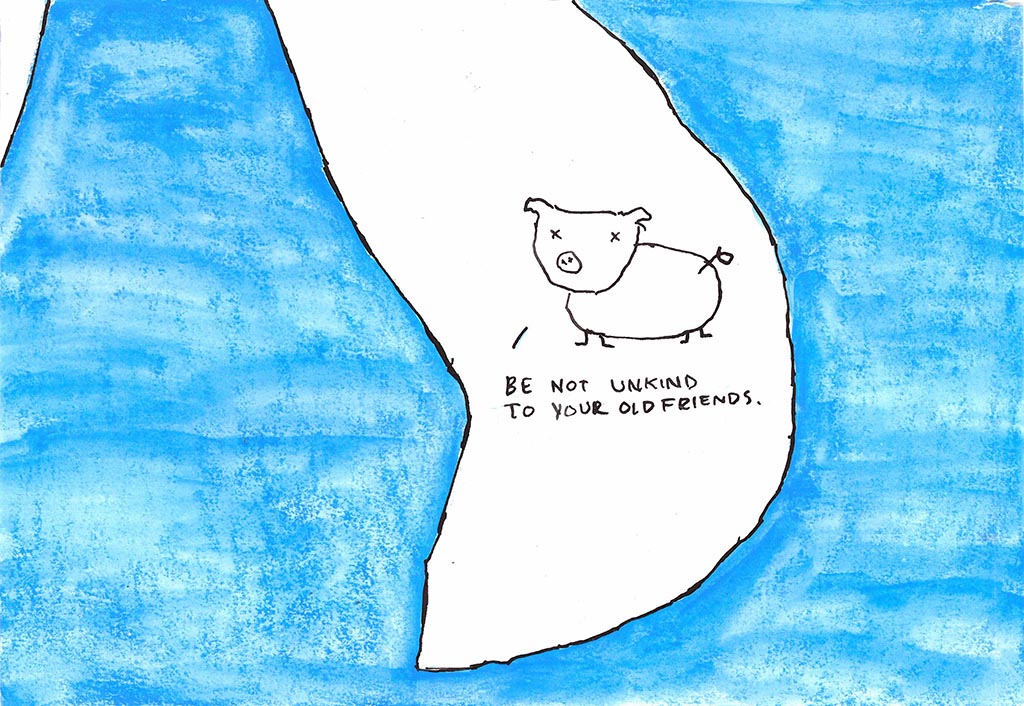 BE NOT UNKIND
TO YOUR OLD FRIENDS.